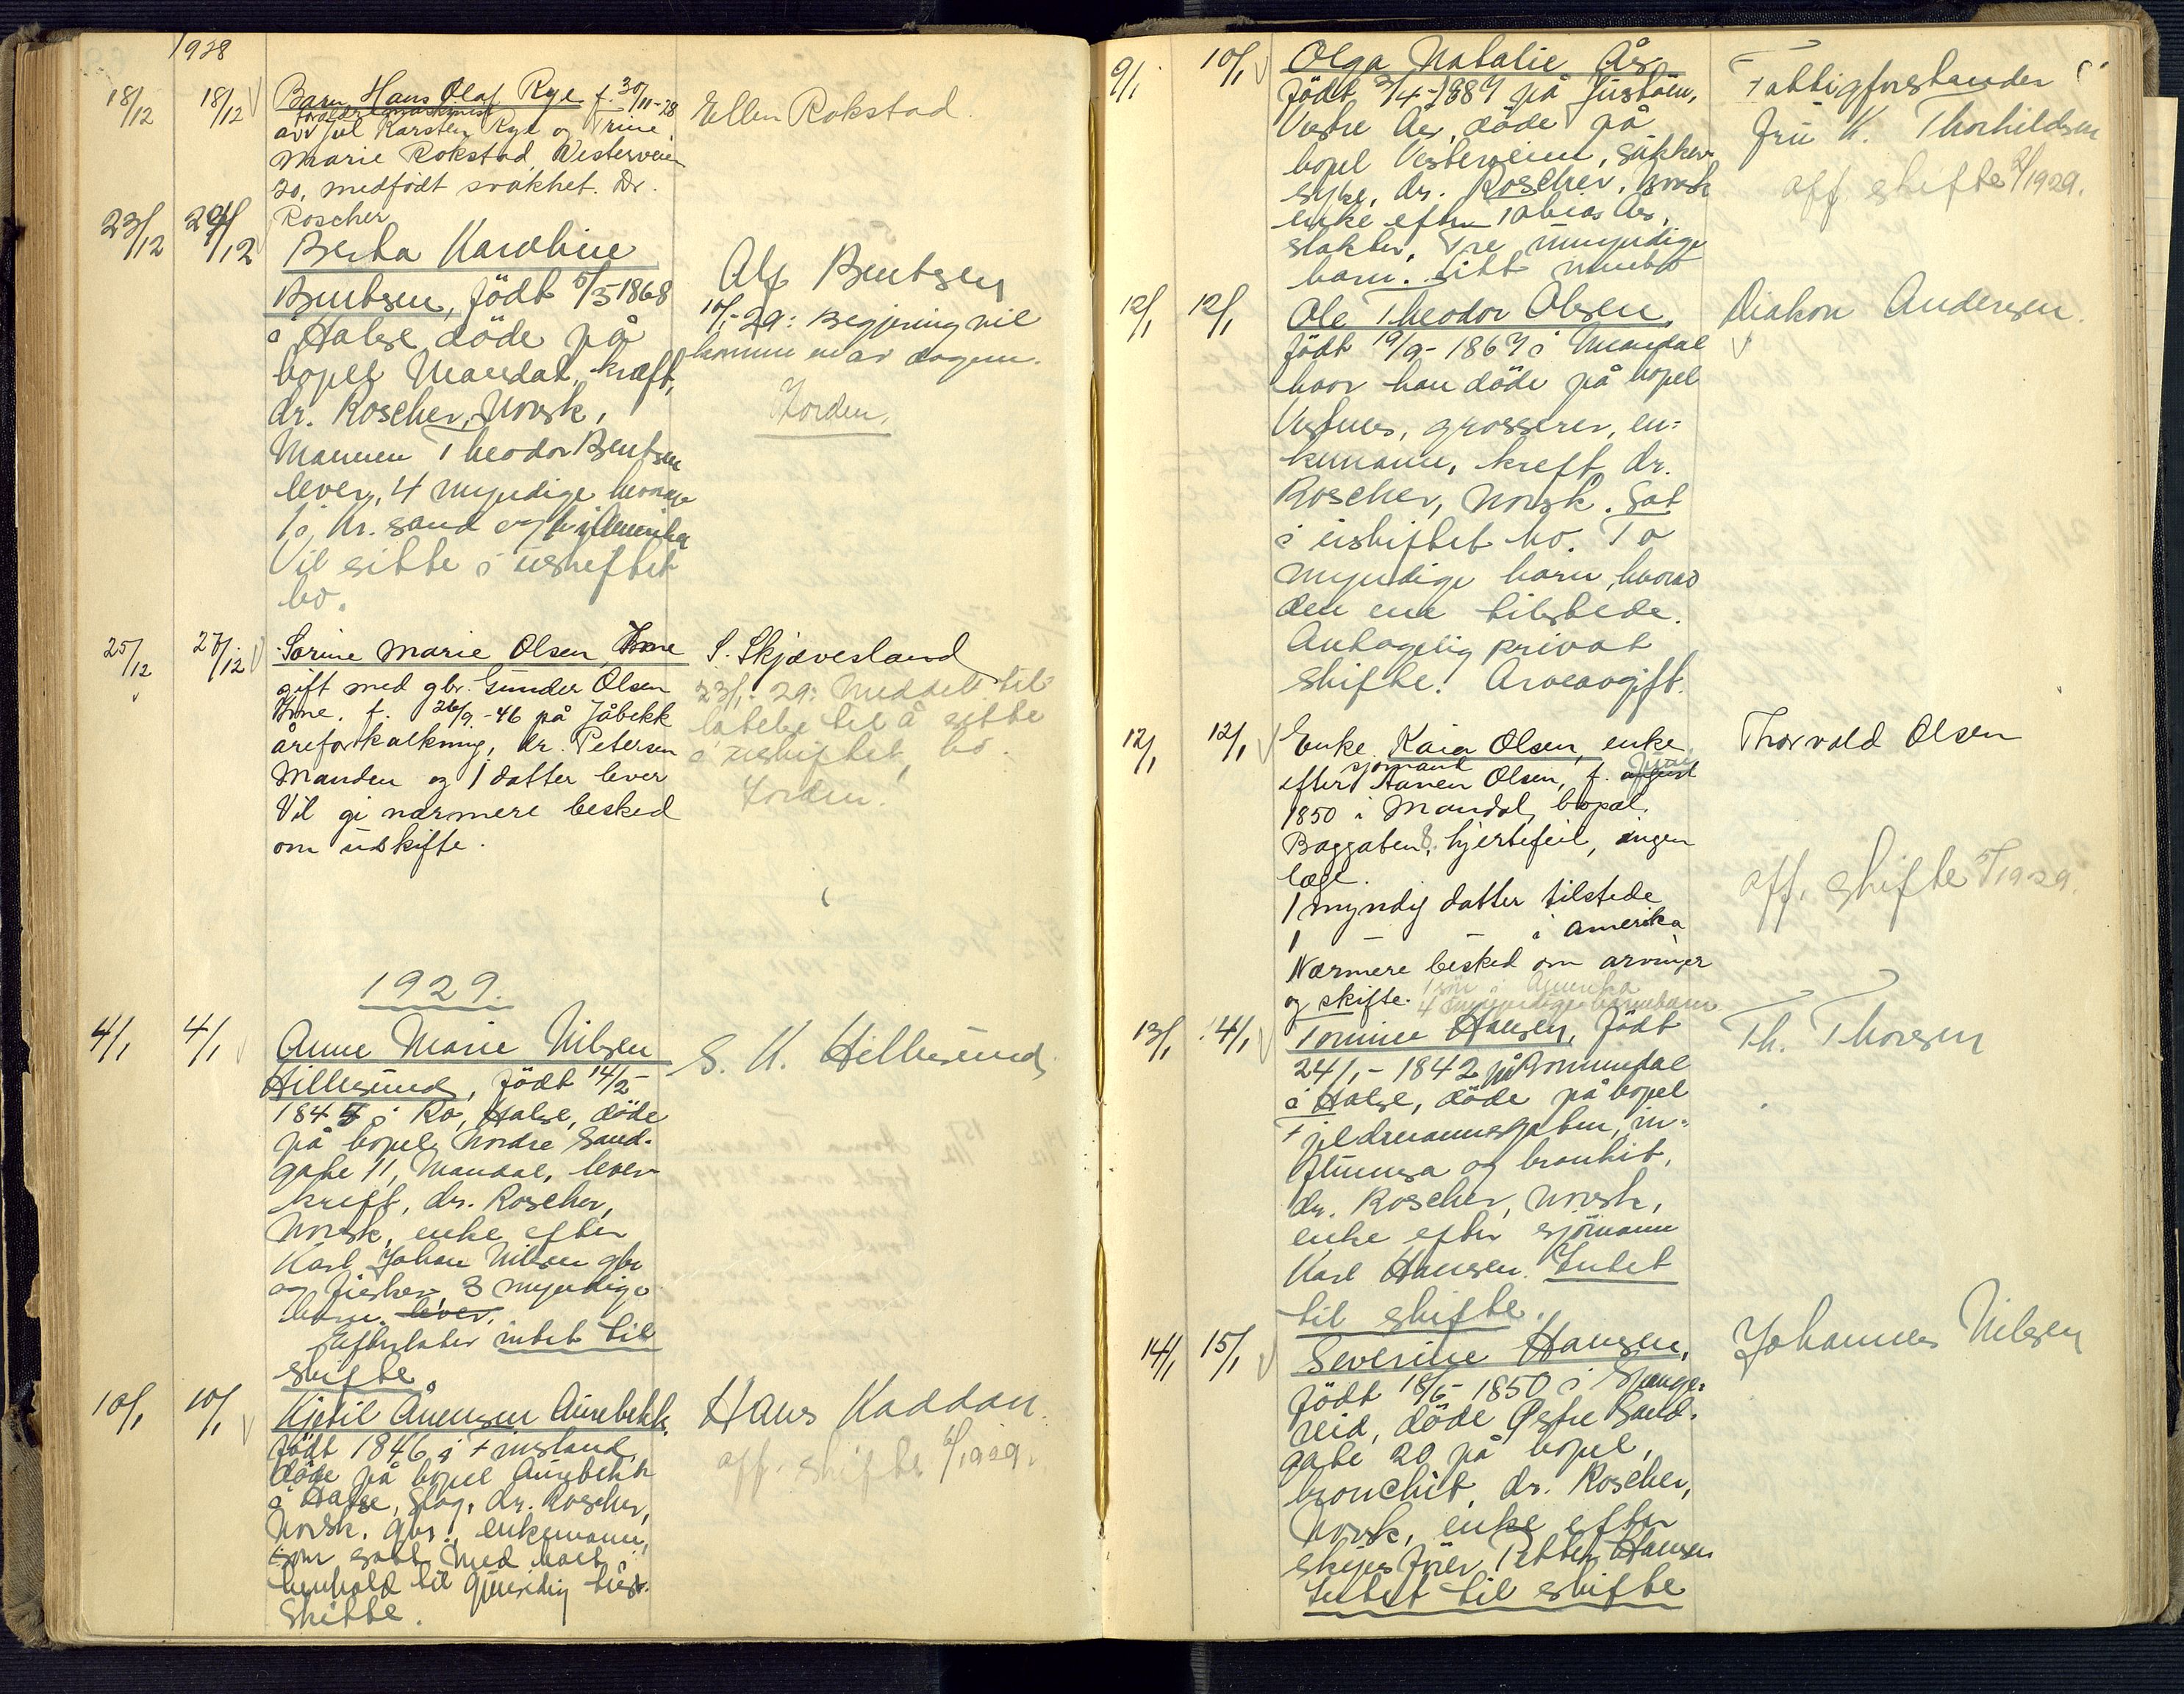 1928
18/12 18/12 Barn Hans Olaf Rye f. 30/11-28
av Karsten Rye og Trine
Marie Rokstad, Vesterveien
20, medfödt svakhet. Dr.
Roscher
Ellen Rokstad
23/12 24/12 Berta Karoline
Bentsen, födt 5/5 1868
i Halse döde på
bopel Mandal, kræft,
dr. Roscher, Norsk,
Mannen Theodor Bentsen
lever, 4 myndige hvorav
1 i Kr. sand og 1 i Amerika
Vil sitte i uskiftet
bo.
Alf Bentsen
10/1-29: Begjering vil
komme en av dagene.
Jorden.
25/12 27/12 Sørine Marie Olsen, Ime
gift med gbr. Gunder Olsen
Ime. f. 26/9-46 på Jåbekk
åreforkalkning, dr. Petersen
Manden og 1 datter lever
Vil gi nærmere besked
om udskifte.
S. Skjævesland
23/1-29: Meddelt til
latelse til å sitte
i uskiftet bo.
Jorden.
1929.
4/1 4/1 Anne Marie Nilsen
Hillesund, födt 14/2-
1844 i Rö, Halse, döde
på bopel Nordre Sand-
gate 11, Mandal, lever-
kreft, dr. Roscher,
Norsk, enke efter
Karl Johan Nilsen gbr
og fisker, 3 myndige
barn lever.
Efterlater intet til
skifte.
S. K. Hillesund
10/1 10/1 Kjetil Ånensen Aurebekk,
födt 1846 i Finsland,
döde på bopel Aurebekk
i Halse, slag, dr. Roscher,
Norsk. gbr., enkemann,
som satt med boet i
henhold til gjensidig
skifte.
Hans Kaddan
off. skifte 1929.
9/1 10/1 Olga Natalie Ås
födt 3/4-1887 på Justöen,
Vestre Ås, döde på
bopel Vesterveien, sukker
syke, dr. Roscher, Norsk
enke efter Tobias Ås,
slakter, Tre umyndige
barn. Sitt uskiftet bo
Fattigforstander
fru K. Thorkildsen
off. skifte 1929.
12/1 12/1 Ole Theodor Olsen,
födt 19/9-1867 i Mandal
hvor han döde på bopel
Vestnes, grosserer, en-
kemann, kreft, dr.
Roscher, Norsk. Sat
i uskiftet bo. To
myndige barn, hvorav
den ene tilstede.
Antagelig privat
skifte! Arveavgift.
Diakon Andersen.
12/1 12/1 Enke Kaia Olsen, enke
efter sjømand Aanen Olsen, f. august Juni
1850 i Mandal, bopæl.
Baggaten 8, hjertefeil, ingen
læge.
1 myndig datter tilstede
1 — — i Amerika
Nærmere besked om arvinger
og skifte. 1 sön i Amerika
4 umyndige barnebarn
Thorvald Olsen
off. skifte 1929.
13/1 14/1 Tomine Hansen, födt
24/1-1842 på Gommedal
i Halse, döde på bopel
Fjeldmannsgaten, in-
fluensa og bronkit,
dr. Roscher, Norsk,
enke efter sjömann
Karl Hansen. Intet
til skifte.
Th. Thorsen
14/1 15/1 Severine Hansen,
födt 18/6-1850 i Spange-
reid, döde Østre Sand-
gate 20 på bopel,
bronchit, dr. Roscher,
Norsk, enke efter
skipsförer Petter Hansen
Intet til skifte
Johannes Nilsen